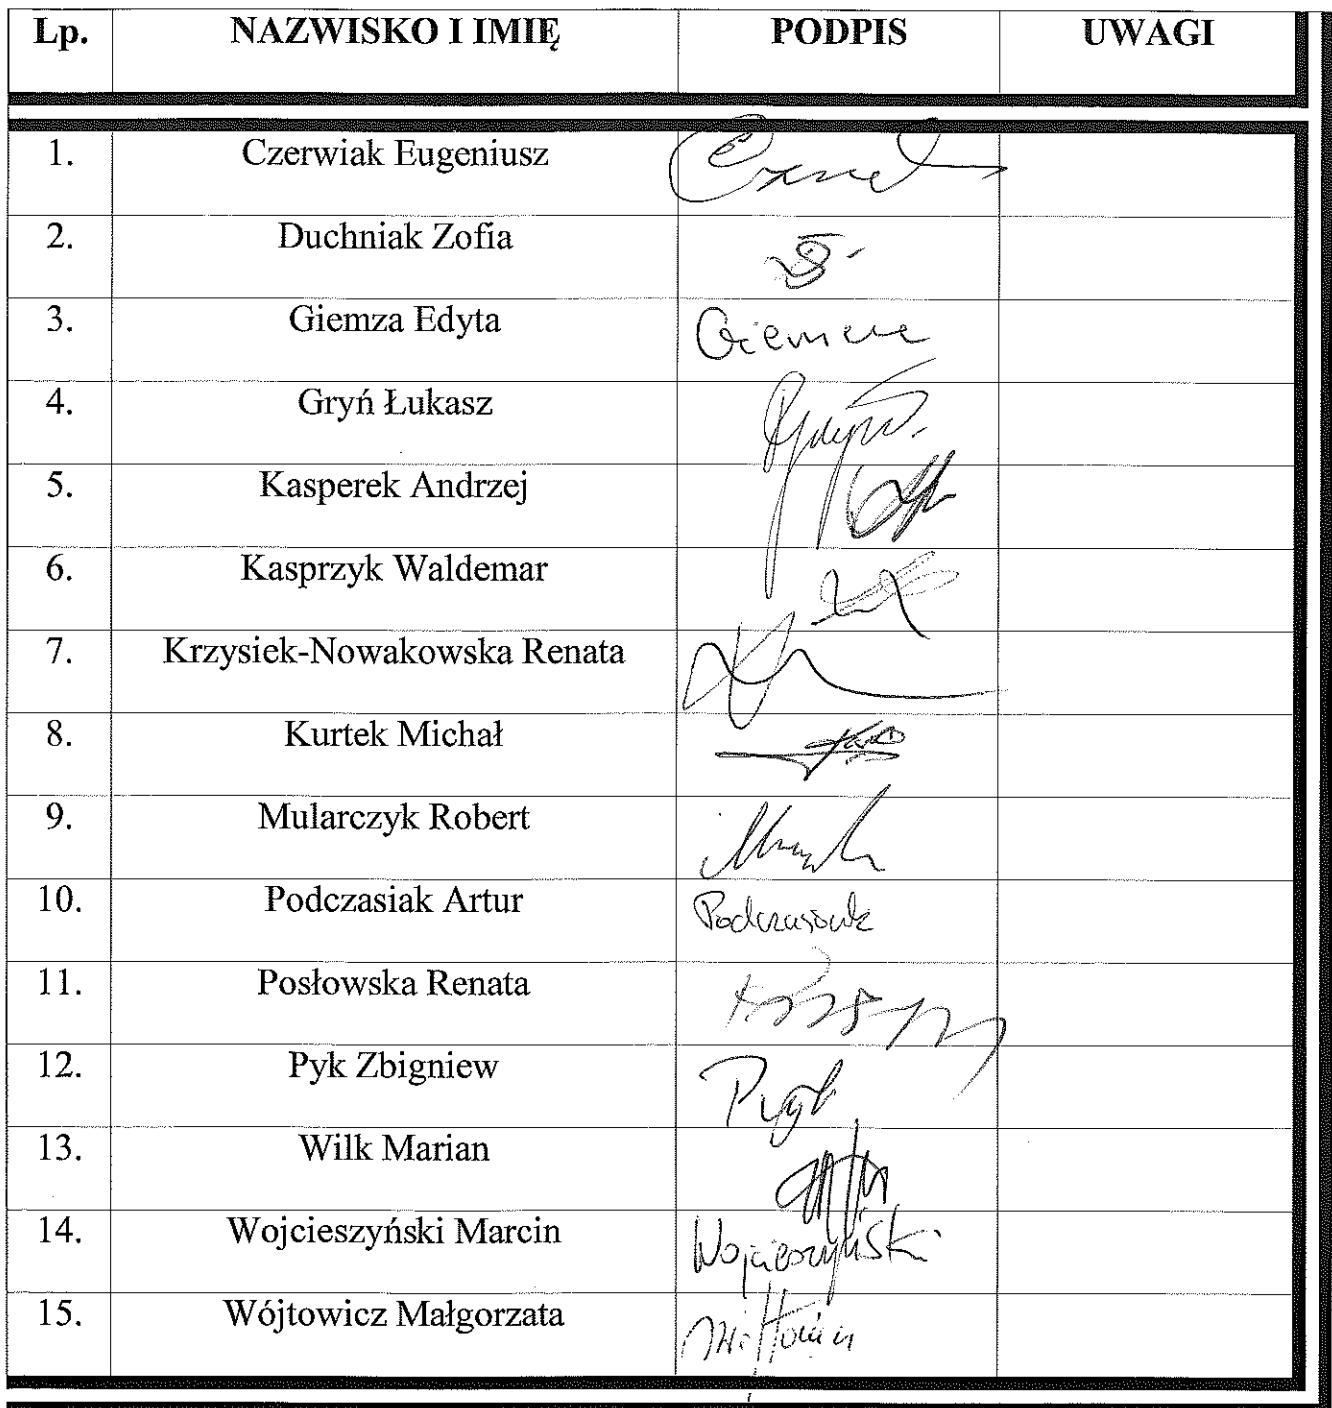 Lp. NAZWISKO I IMIĘ PODPIS UWAGI
1. Czerwiak Eugeniusz
2. Duchniak Zofia
3. Giemza Edyta
4. Gryń Łukasz
5. Kasperek Andrzej
6. Kasprzyk Waldemar
7. Krzysiek-Nowakowska Renata
8. Kurtek Michał
9. Mularczyk Robert
10. Podczasiak Artur Podczasiak
11. Posłowska Renata
12. Pyk Zbigniew Pyk
13. Wilk Marian
14. Wojcieszyński Marcin Wojcieszyński
15. Wójtowicz Małgorzata